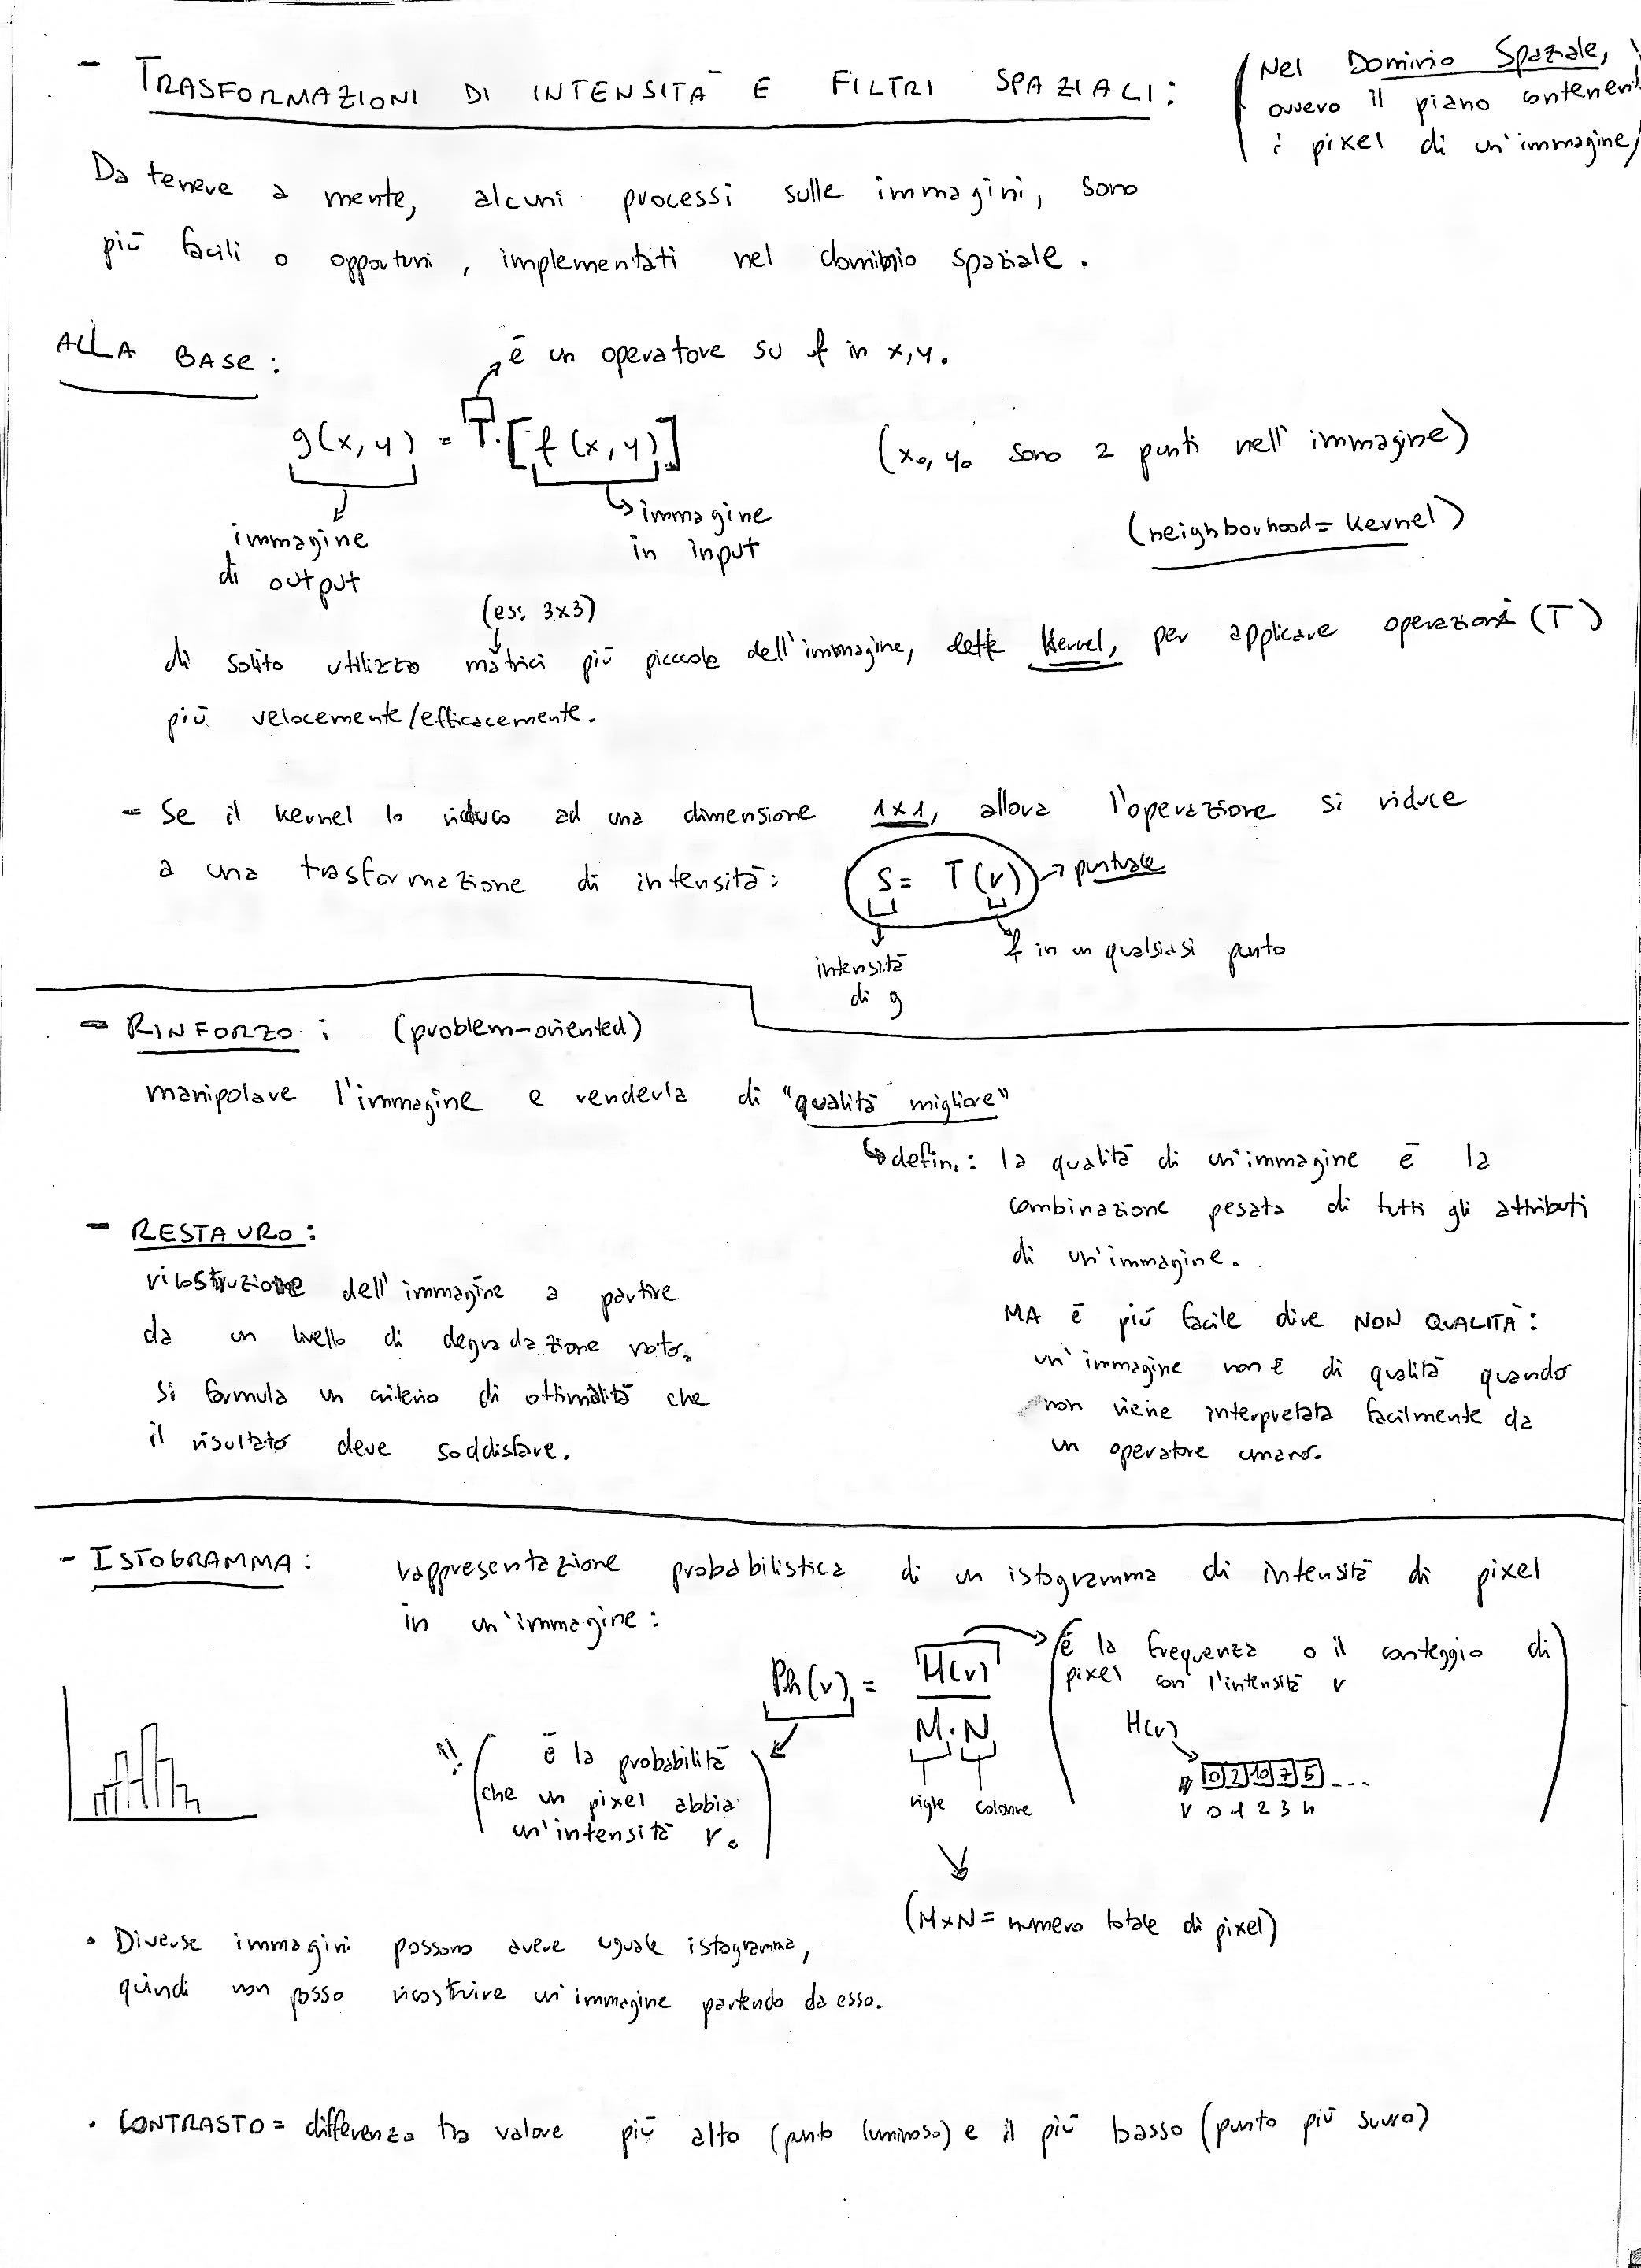 - TRASFORMAZIONI DI INTENSITÀ E FILTRI SPAZIALI:
(Nel Dominio Spaziale,
ovvero il piano contenent
i pixel di un'immagine)
Da tenere a mente, alcuni processi sulle immagini, sono
più facili o opportuni, implementati nel dominio spaziale.
ALLA BASE:
è un operatore su f in x,y.
g(x,y) = T.[f(x,y)]
(x₀, y₀ sono 2 punti nell'immagine)
immagine
di output
immagine
in input
(neighborhood = kernel)
(es: 3x3)
di solito utilizzo matrici più piccole dell'immagine, dette Kernel, per applicare operazioni (T)
più velocemente/efficacemente.
- Se il kernel lo riduco ad una dimensione 1x1, allora l'operazione si riduce
a una trasformazione di intensità:
S = T(r) → puntuale
intensità
di g
f in un qualsiasi punto
- RINFORZO: (problem-oriented)
manipolare l'immagine e renderla di "qualità migliore"
defin.: la qualità di un'immagine è la
combinazione pesata di tutti gli attributi
di un'immagine.
MA è più facile dire NON QUALITÀ:
un'immagine non è di qualità quando
non viene interpretata facilmente da
un operatore umano.
- RESTAURO:
ricostruzione dell'immagine a partire
da un livello di degradazione noto.
Si formula un criterio di ottimalità che
il risultato deve soddisfare.
- ISTOGRAMMA: rappresentazione probabilistica di un istogramma di intensità di pixel
in un'immagine:
Ph(r) = H(r) / M.N
(è la frequenza o il conteggio di
pixel con l'intensità r)
H(r)
0 2 10 7 5 ...
r 0 1 2 3 4
!! (è la probabilità
che un pixel abbia
un'intensità r.)
righe colonne
(MxN = numero totale di pixel)
• Diverse immagini possono avere uguale istogramma,
quindi non posso ricostruire un'immagine partendo da esso.
• CONTRASTO = differenza tra valore più alto (punto luminoso) e il più basso (punto più scuro)